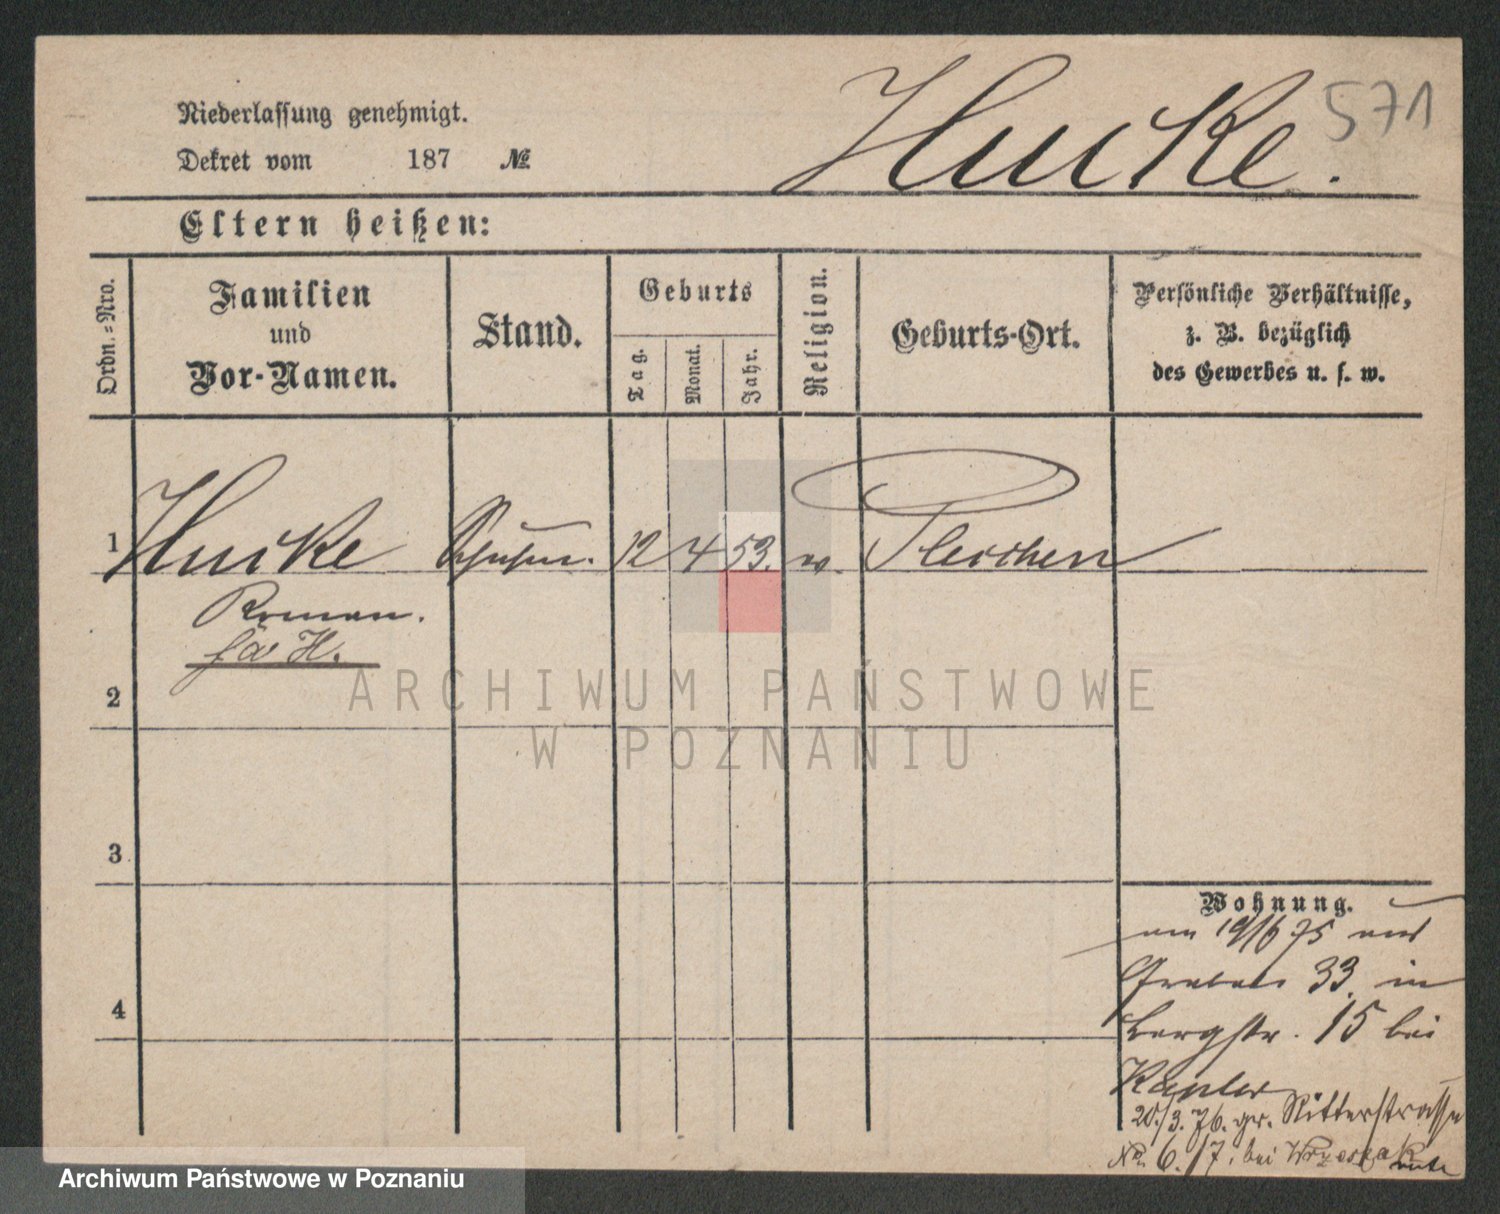 Niederlassung genehmigt.
Dekret vom 187 №
Hucke.
571
Eltern heißen:
Ordn.-Nro.
Familien
und
Vor-Namen.
Stand.
Geburts
Tag.
Monat.
Jahr.
Religion.
Geburts-Ort.
Persönliche Verhältnisse,
z. B. bezüglich
des Gewerbes u. s. w.
1 Hucke 12 4 53. Pleschen
Roman.
2
3
4
Wohnung.
am 19/6 75 aus
Graben 33. in
Bergstr. 15 bei
20./3. 76. Ritterstrasse
No. 6./7. bei
ARCHIWUM PAŃSTWOWE
W POZNANIU
Archiwum Państwowe w Poznaniu